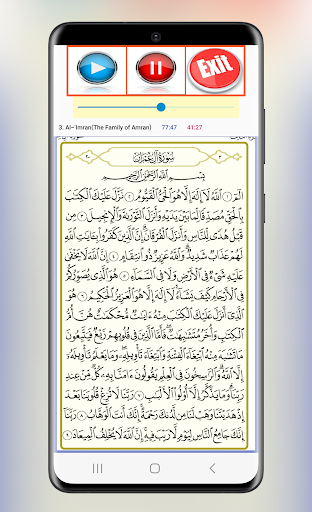 Exit
3. Al-'Imran(The Family of Amran) 77:47 41:27
سُورَةُ آلِ عِمْرَانَ
بِسْمِ ٱللَّهِ ٱلرَّحْمَٰنِ ٱلرَّحِيمِ
الٓمٓ ١ ٱللَّهُ لَآ إِلَٰهَ إِلَّا هُوَ ٱلْحَىُّ ٱلْقَيُّومُ ٢ نَزَّلَ عَلَيْكَ ٱلْكِتَٰبَ
بِٱلْحَقِّ مُصَدِّقًا لِّمَا بَيْنَ يَدَيْهِ وَأَنزَلَ ٱلتَّوْرَىٰةَ وَٱلْإِنجِيلَ ٣ مِن
قَبْلُ هُدًى لِّلنَّاسِ وَأَنزَلَ ٱلْفُرْقَانَ ۗ إِنَّ ٱلَّذِينَ كَفَرُوا۟ بِـَٔايَٰتِ ٱللَّهِ
لَهُمْ عَذَابٌ شَدِيدٌ ۗ وَٱللَّهُ عَزِيزٌ ذُو ٱنتِقَامٍ ٤ إِنَّ ٱللَّهَ لَا يَخْفَىٰ
عَلَيْهِ شَىْءٌ فِى ٱلْأَرْضِ وَلَا فِى ٱلسَّمَآءِ ٥ هُوَ ٱلَّذِى يُصَوِّرُكُمْ
فِى ٱلْأَرْحَامِ كَيْفَ يَشَآءُ ۚ لَآ إِلَٰهَ إِلَّا هُوَ ٱلْعَزِيزُ ٱلْحَكِيمُ ٦ هُوَ
ٱلَّذِىٓ أَنزَلَ عَلَيْكَ ٱلْكِتَٰبَ مِنْهُ ءَايَٰتٌ مُّحْكَمَٰتٌ هُنَّ أُمُّ
ٱلْكِتَٰبِ وَأُخَرُ مُتَشَٰبِهَٰتٌ ۖ فَأَمَّا ٱلَّذِينَ فِى قُلُوبِهِمْ زَيْغٌ فَيَتَّبِعُونَ
مَا تَشَٰبَهَ مِنْهُ ٱبْتِغَآءَ ٱلْفِتْنَةِ وَٱبْتِغَآءَ تَأْوِيلِهِۦ ۗ وَمَا يَعْلَمُ تَأْوِيلَهُۥٓ
إِلَّا ٱللَّهُ ۗ وَٱلرَّٰسِخُونَ فِى ٱلْعِلْمِ يَقُولُونَ ءَامَنَّا بِهِۦ كُلٌّ مِّنْ عِندِ
رَبِّنَا ۗ وَمَا يَذَّكَّرُ إِلَّآ أُو۟لُوا۟ ٱلْأَلْبَٰبِ ٧ رَبَّنَا لَا تُزِغْ قُلُوبَنَا بَعْدَ
إِذْ هَدَيْتَنَا وَهَبْ لَنَا مِن لَّدُنكَ رَحْمَةً ۚ إِنَّكَ أَنتَ ٱلْوَهَّابُ ٨ رَبَّنَآ
إِنَّكَ جَامِعُ ٱلنَّاسِ لِيَوْمٍ لَّا رَيْبَ فِيهِ ۚ إِنَّ ٱللَّهَ لَا يُخْلِفُ ٱلْمِيعَادَ ٩